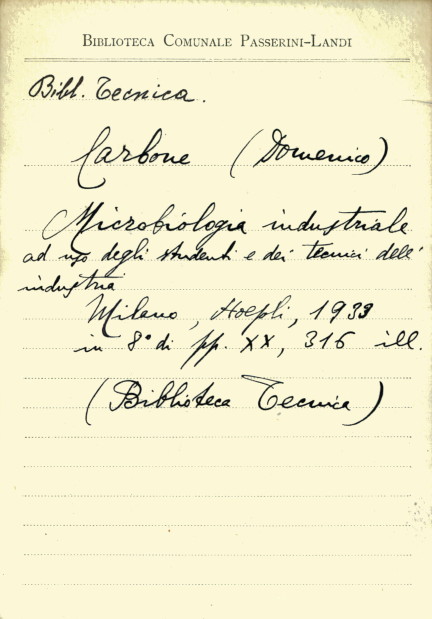 BIBLIOTECA COMUNALE PASSERINI-LANDI
Bibl. Tecnica.
Carbone (Domenico)
Microbiologia industriale
ad uso degli studenti e dei tecnici dell'
industria
Milano, Hoepli, 1933
in 8° di pp. XX, 316 ill.
(Biblioteca Tecnica)